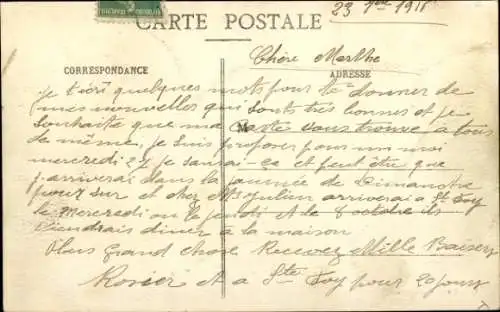 CARTE POSTALE
23 1918
Chère Marthe
CORRESPONDANCE
ADRESSE
Je t'écri quelques mots pour te donner de
mes nouvelles qui sont très bonnes et je
souhaite que ma Carte vous trouve à tous
de même. je suis proposer pour un moi
mercredi 27 je saurai-ça et peut être que
j'arriverai dans la journée de Dimanche
pour sur et cher Mr Julien arriverai a St Foy
le mercredi ou le jeudi et le 8 octobre ils
viendrais diner à la maison
Plus Grand chose Recevez Mille Baisers
Rosier et a Ste Foy pour 20 jours